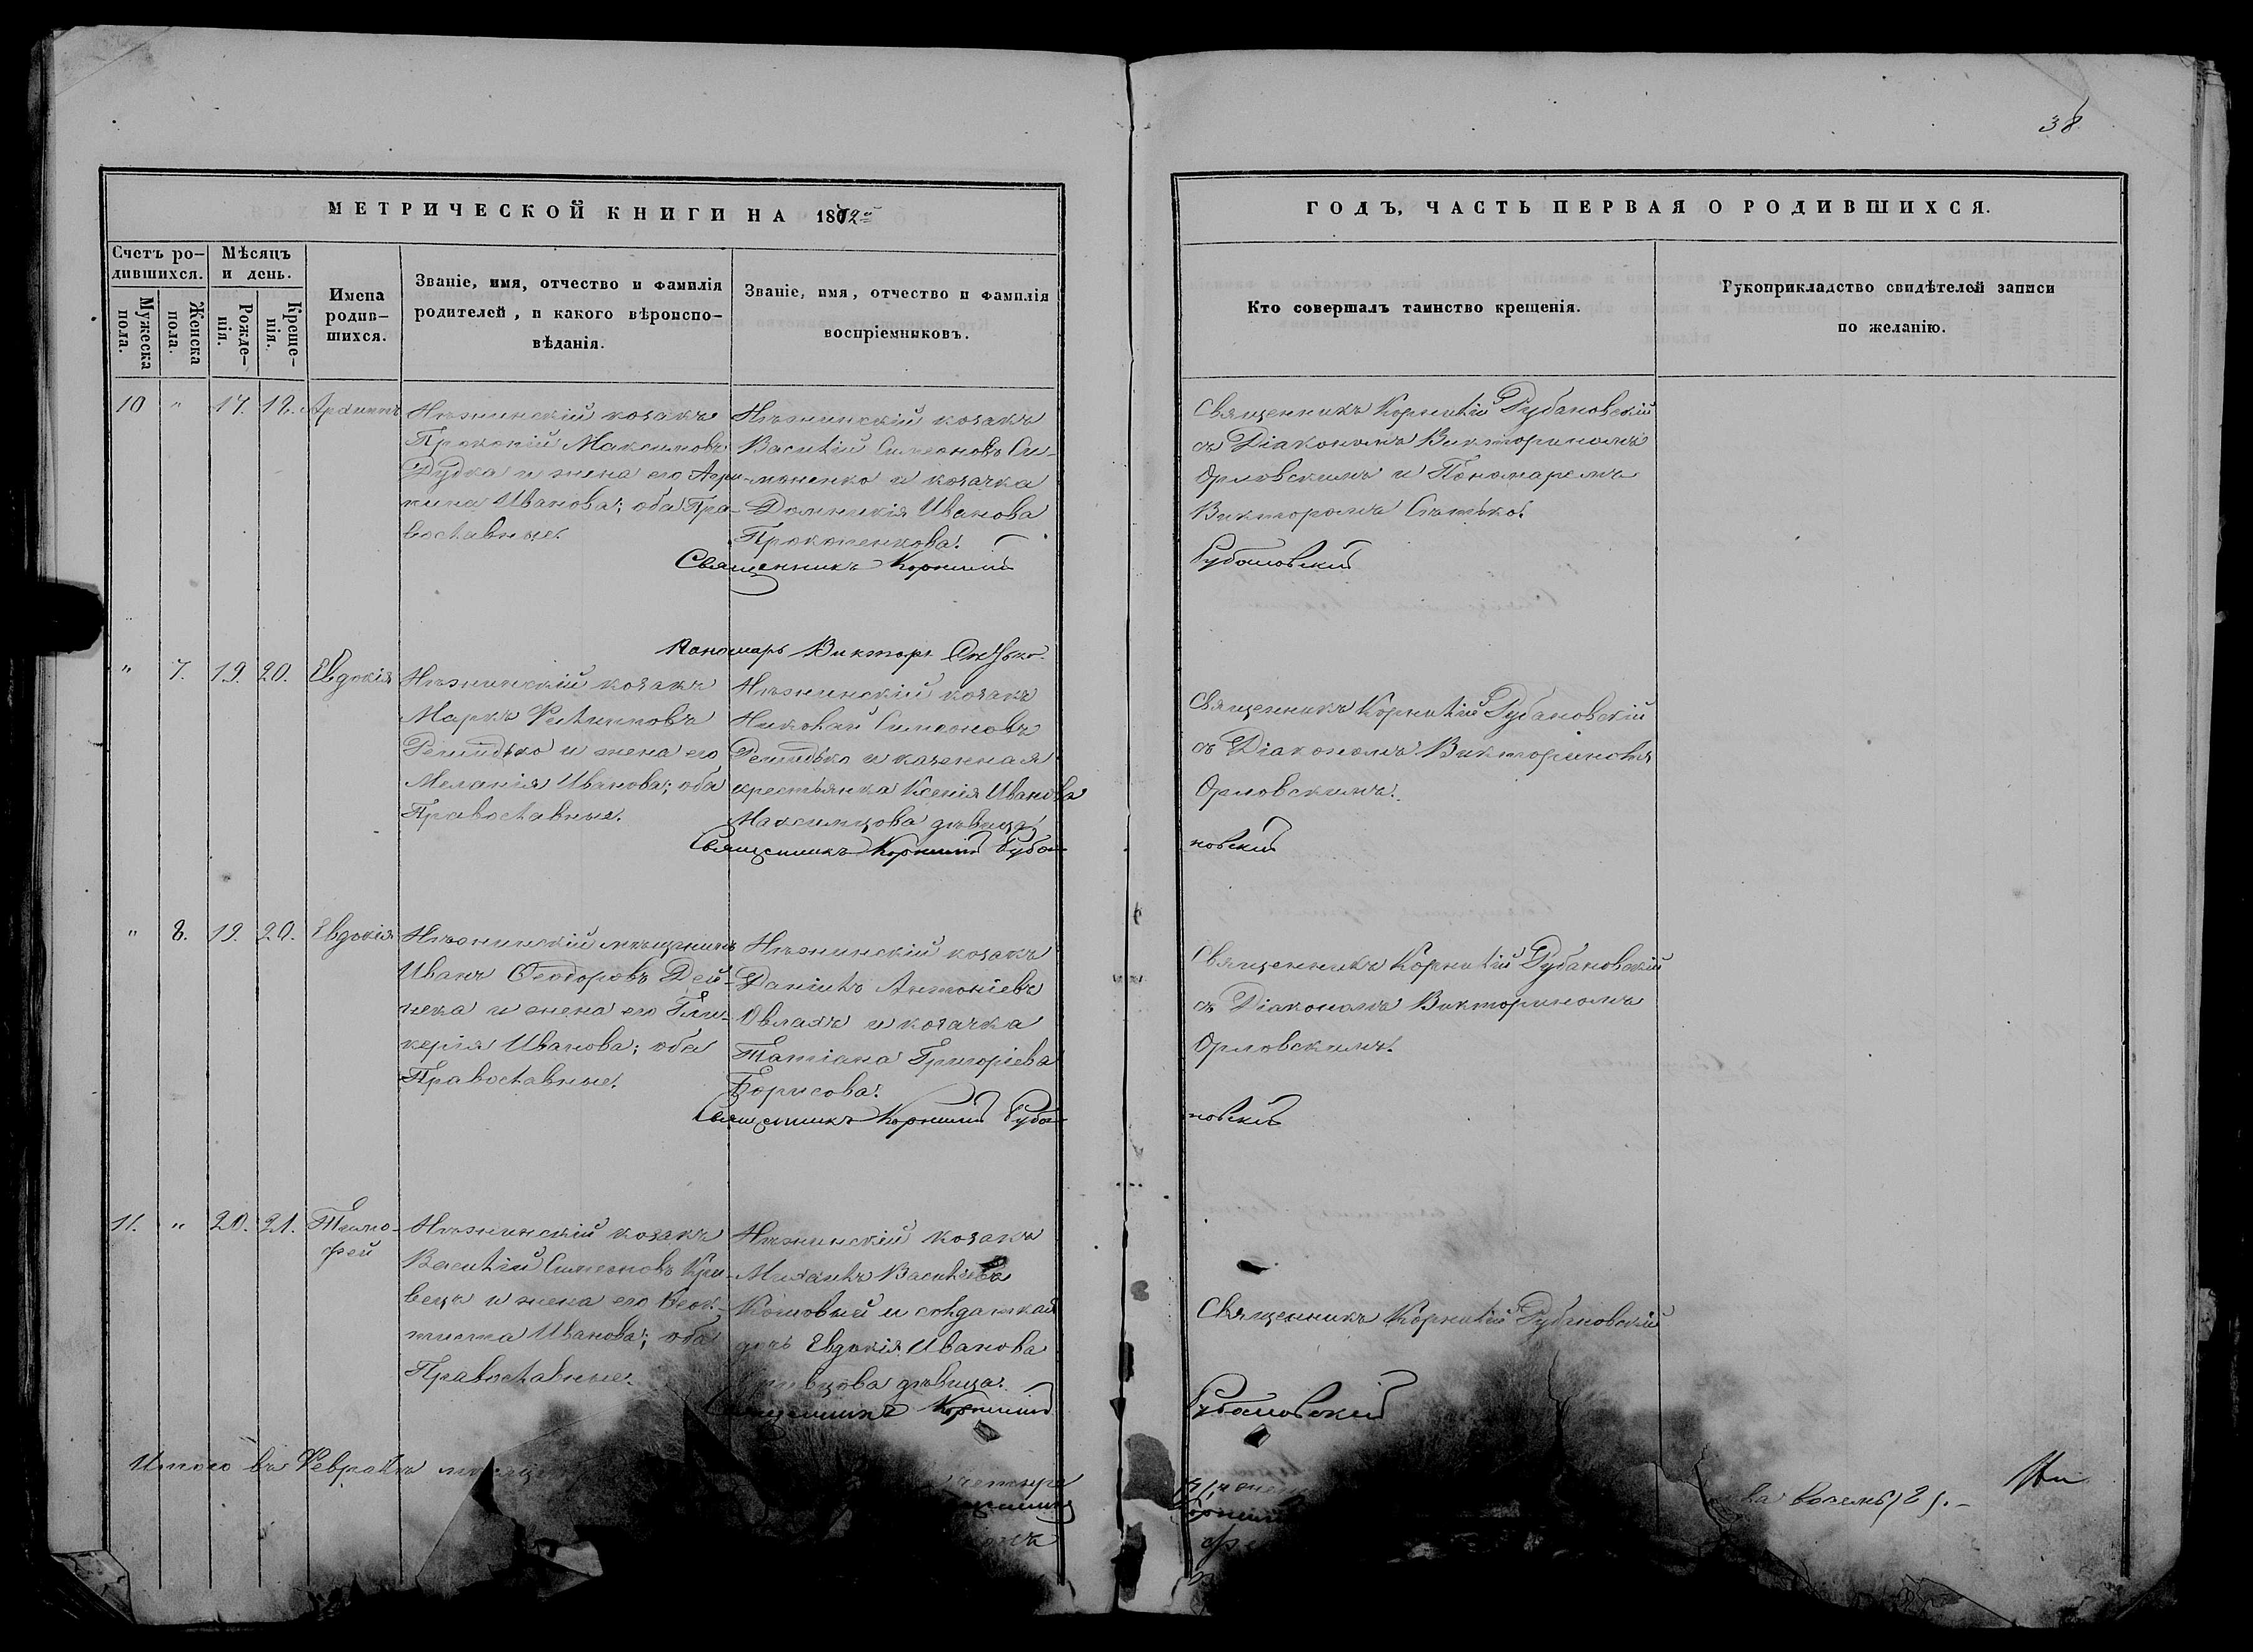 38
МЕТРИЧЕСКОЙ КНИГИ НА 1872й
ГОДЪ, ЧАСТЬ ПЕРВАЯ О РОДИВШИХСЯ.
Счетъ ро-
дившихся.
Мужеска
пола.
Женска
пола.
Мѣсяцъ
и день.
Рожде-
нія.
Креще-
нія.
Имена
родив-
шихся.
Званіе, имя, отчество и фамилія
родителей, и какого вѣроиспо-
вѣданія.
Званіе, имя, отчество и фамилія
воспріемниковъ.
Кто совершалъ таинство крещенія.
Рукоприкладство свидѣтелей записи
по желанію.
10 " 17.
Нѣжинскій козакъ
Прокопій Максимовъ
Дудка и жена его Агри-
пина Иванова; оба Пра-
вославные.
Нѣжинскій козакъ
Василій Симеоновъ Си-
моненко и козачка
Домникія Иванова
Прокопенкова.
Священникъ Корнилій Рубановскій
съ Діакономъ Викториномъ
Орловскимъ и Пономаремъ
Викторомъ
Священникъ Корнилій
Рубановскій
Пономарь Викторъ
" 7. 19. 20. Евдокія
Нѣжинскій козакъ
Маркъ Филипповъ
и жена его
Меланія Иванова; оба
Православные.
Нѣжинскій козакъ
Николай Симеоновъ
и казенная
крестьянка Ксенія Иванова
Максимцова дѣвица.
Священникъ Корнилій Рубановскій
съ Діакономъ Викториномъ
Орловскимъ.
Священникъ Корнилій Руба-
новскій
" 8. 19. 20. Евдокія
Нѣжинскій мѣщанинъ
Иванъ Ѳеодоровъ Дей-
нека и жена его Гли-
керія Иванова; оба
Православные.
Нѣжинскій козакъ
Даніилъ Антоніевъ
Овлахъ и козачка
Татіана Григоріева
Борисова.
Священникъ Корнилій Рубановскій
съ Діакономъ Викториномъ
Орловскимъ.
Священникъ Корнилій Руба-
новскій
11. " 20. 21. Тимо-
фей
Нѣжинскій козакъ
Василій Симеоновъ Кри-
вецъ и жена его Ѳеок-
тиста Иванова; оба
Православные.
Нѣжинскій козакъ
Михаилъ Васильевъ
Кошовый и солдатская
дочь Евдокія Иванова
дѣвица.
Священникъ Корнилій Рубановскій
Священникъ Корнилій
Рубановскій
Итого въ Февралѣ
четыре